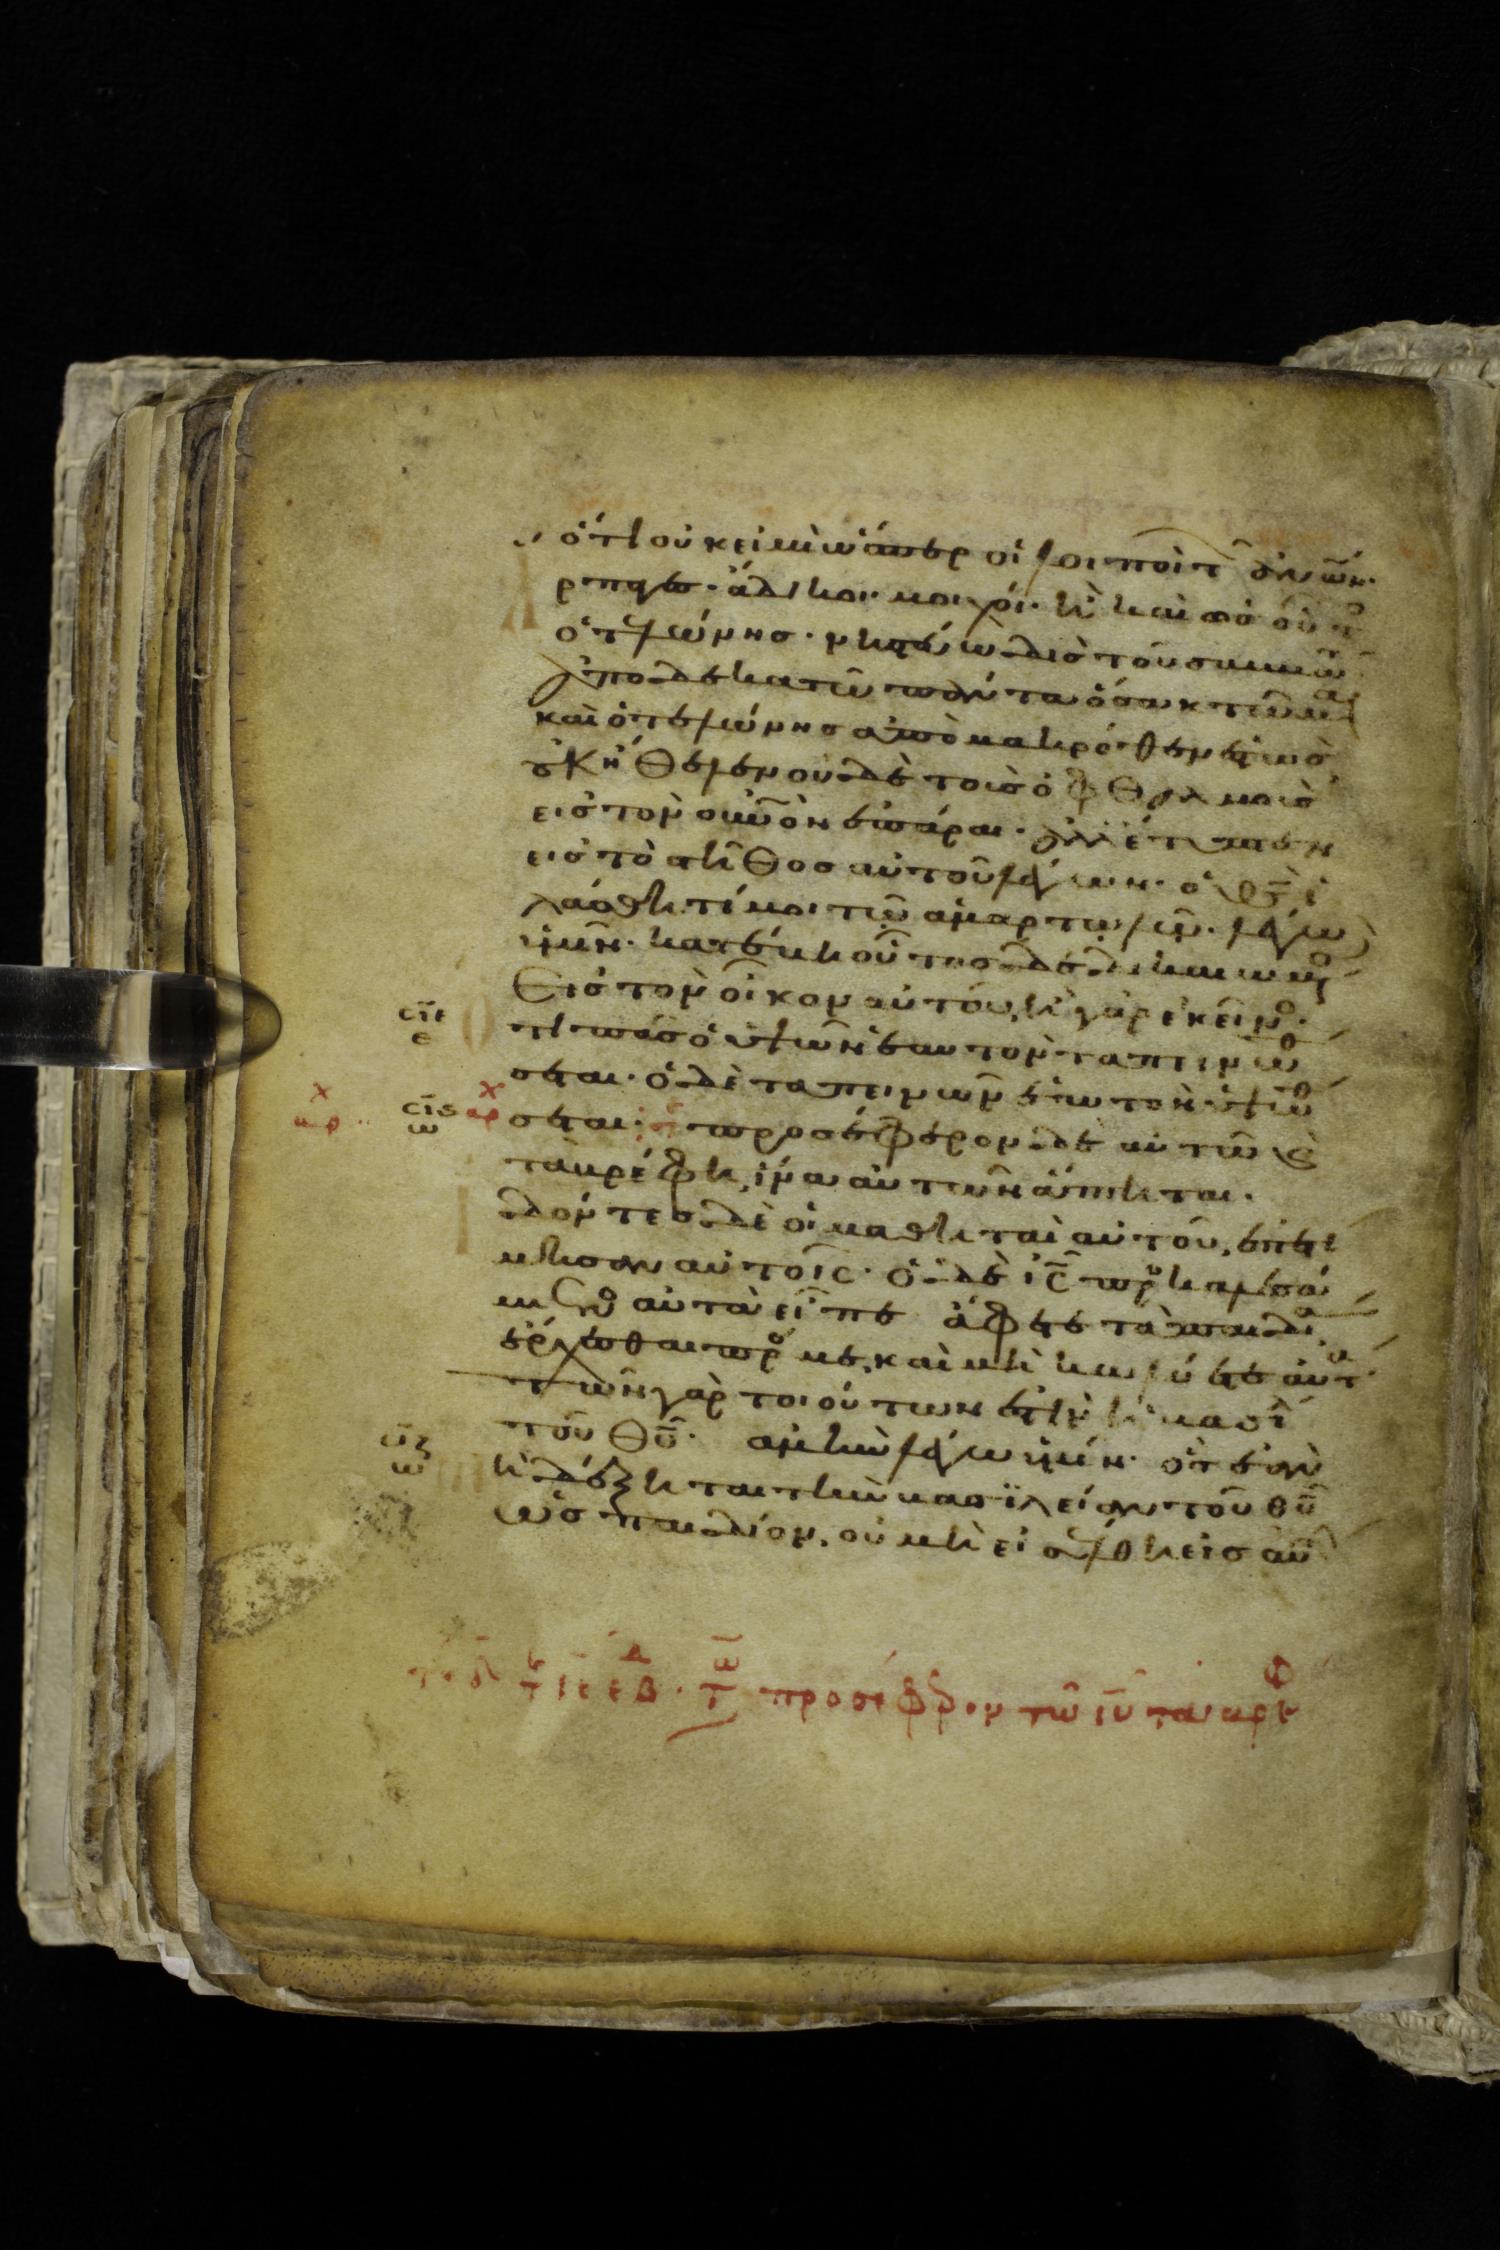 ὅτι οὐκ εἰμὶ ὥσπερ οἱ λοιποὶ τῶν ἀνων
ἅρπαγες. ἄδικοι. μοιχοί. ἢ καὶ ὡς οὗτος
ὁ τελώνης. νηστεύω δὶς τοῦ σαββάτου
ἀποδεκατῶ πάντα ὅσα κτῶμαι
καὶ ὁ τελώνης ἀπὸ μακρόθεν ἑστὼς
οὐκ ἤθελεν οὐδὲ τοῖς ὀφθαλμοῖς
εἰς τὸν οὐνὸν ἐπάραι. ἀλλ' ἔτυπτεν
εἰς τὸ στῆθος αὐτοῦ λέγων. ὁ θς ἱ
λάσθητί μοι τῷ ἁμαρτωλῷ. λέγω
ὑμῖν. κατέβη οὗτος δεδικαιωμένος
εἰς τὸν οἶκον αὐτοῦ, ἢ γὰρ ἐκεῖνος.
ὅτι πᾶς ὁ ὑψῶν ἑαυτὸν ταπεινωθή
σεται. ὁ δὲ ταπεινῶν ἑαυτὸν ὑψωθή
σεται. προσέφερον δὲ αὐτῷ καὶ
τὰ βρέφη, ἵνα αὐτῶν ἅπτηται.
ἰδόντες δὲ οἱ μαθηταὶ αὐτοῦ, ἐπετί
μησαν αὐτοῖς. ὁ δὲ ις προσκαλεσά
μενος αὐτὰ εἶπε ἄφετε τὰ παιδία
ἔρχεσθαι πρός με, καὶ μὴ κωλύετε αὐτά.
τῶν γὰρ τοιούτων ἐστὶν ἡ βασι
τοῦ θυ. ἀμὴν λέγω ὑμῖν. ὃς ἐὰν
μὴ δέξηται τὴν βασιλείαν τοῦ θυ
ὡς παιδίον, οὐ μὴ εἰσέλθῃ εἰς αὐ
προσέφερον τῷ ιυ τὰ βρέφ